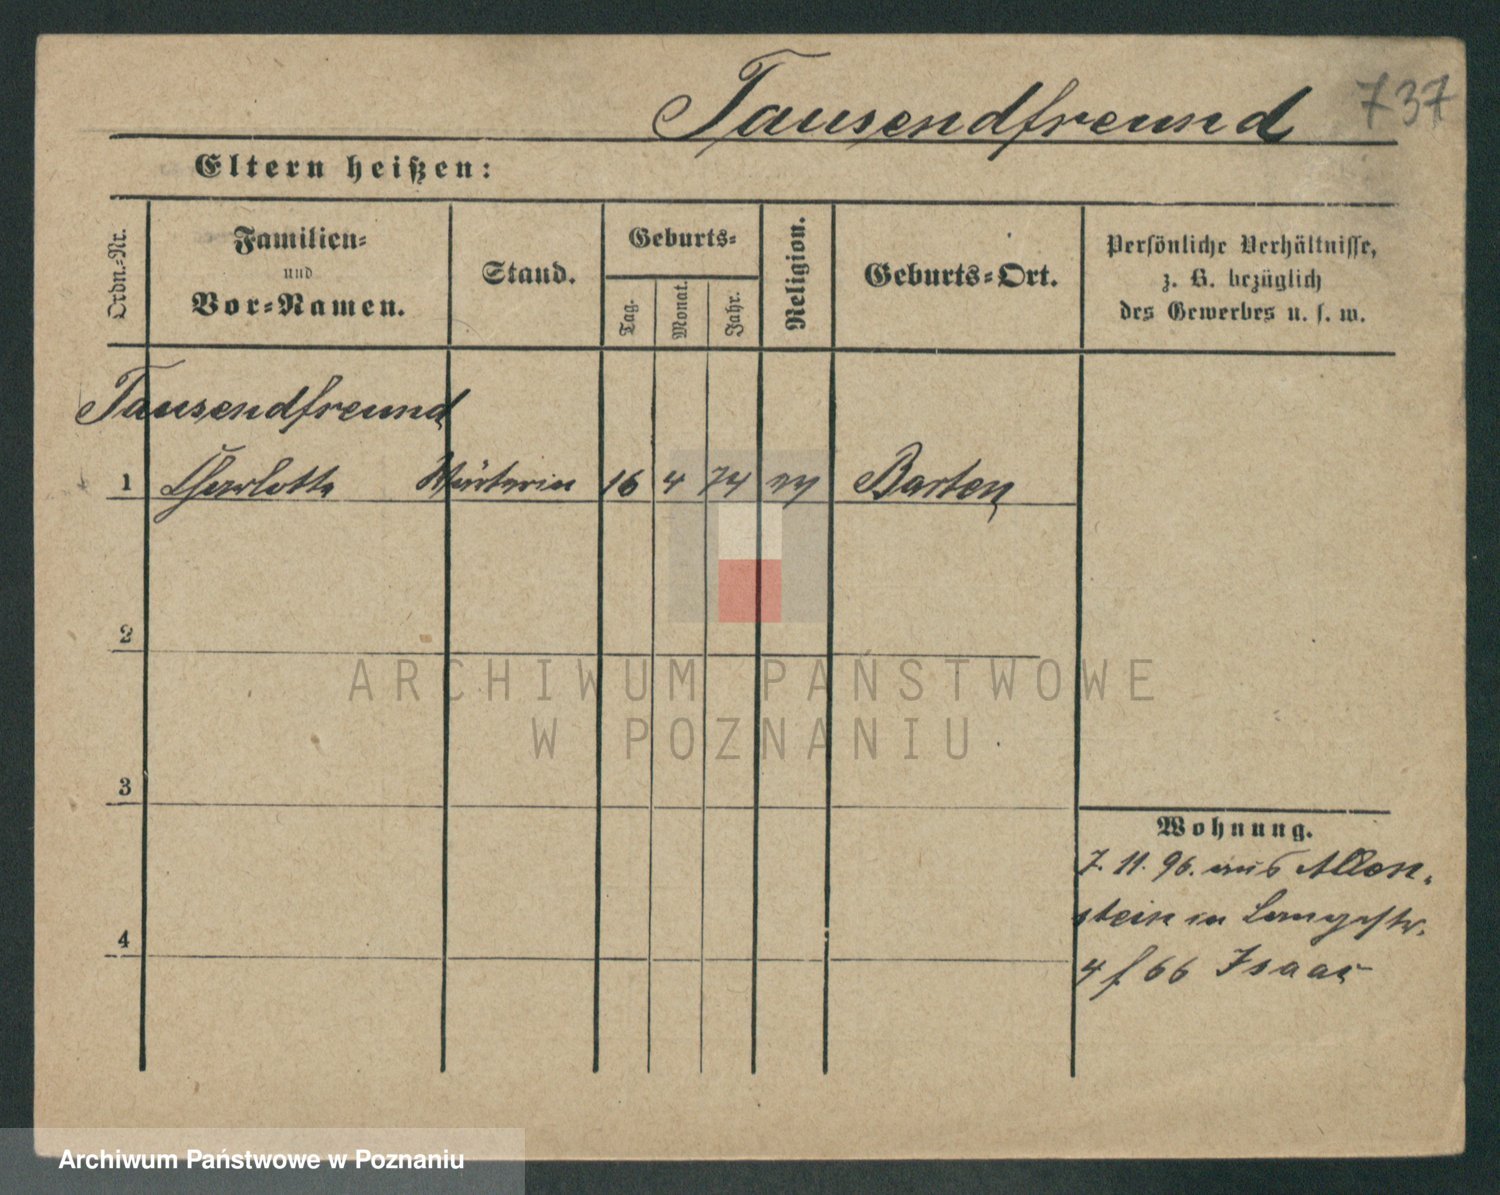 Tausendfreund
737
Eltern heißen:
Ordn.-Nr.
Familien-
und
Vor-Namen.
Stand.
Geburts-
Tag.
Monat.
Jahr.
Religion.
Geburts-Ort.
Persönliche Verhältnisse,
z. B. bezüglich
des Gewerbes u. s. w.
Tausendfreund
1 Charlotte Wärterin 16 4 74 Barten
2
ARCHIWUM PAŃSTWOWE
W POZNANIU
3
Wohnung.
7. 11. 96. aus Allen-
stein in Langestr.
4
4 f 66 Isaac
Archiwum Państwowe w Poznaniu